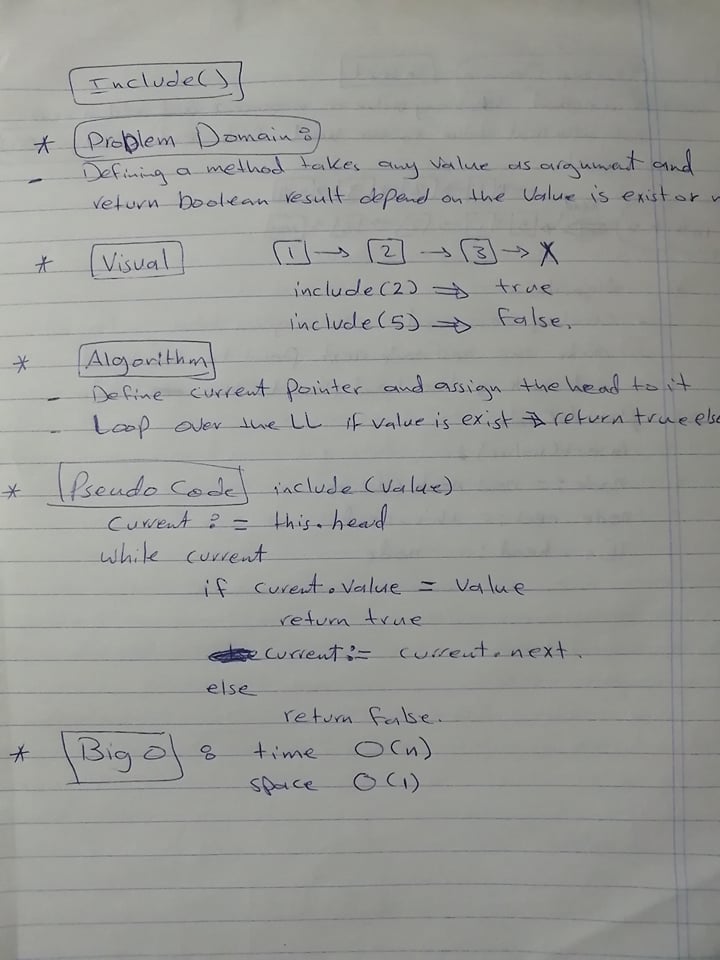 Include()
* Problem Domain :
- Defining a method takes any value as argument and
return boolean result depend on the Value is exist or
* Visual [1] → [2] → [3] → X
include(2) ⇒ true
include(5) ⇒ False.
* Algorithm
- Define current pointer and assign the head to it
- Loop over the LL if value is exist ⇒ return true else
* Pseudo Code include (value)
Current := this.head
while current
if curent.value = value
return true
current := current.next.
else
return false.
* Big O : time O(n)
space O(1)